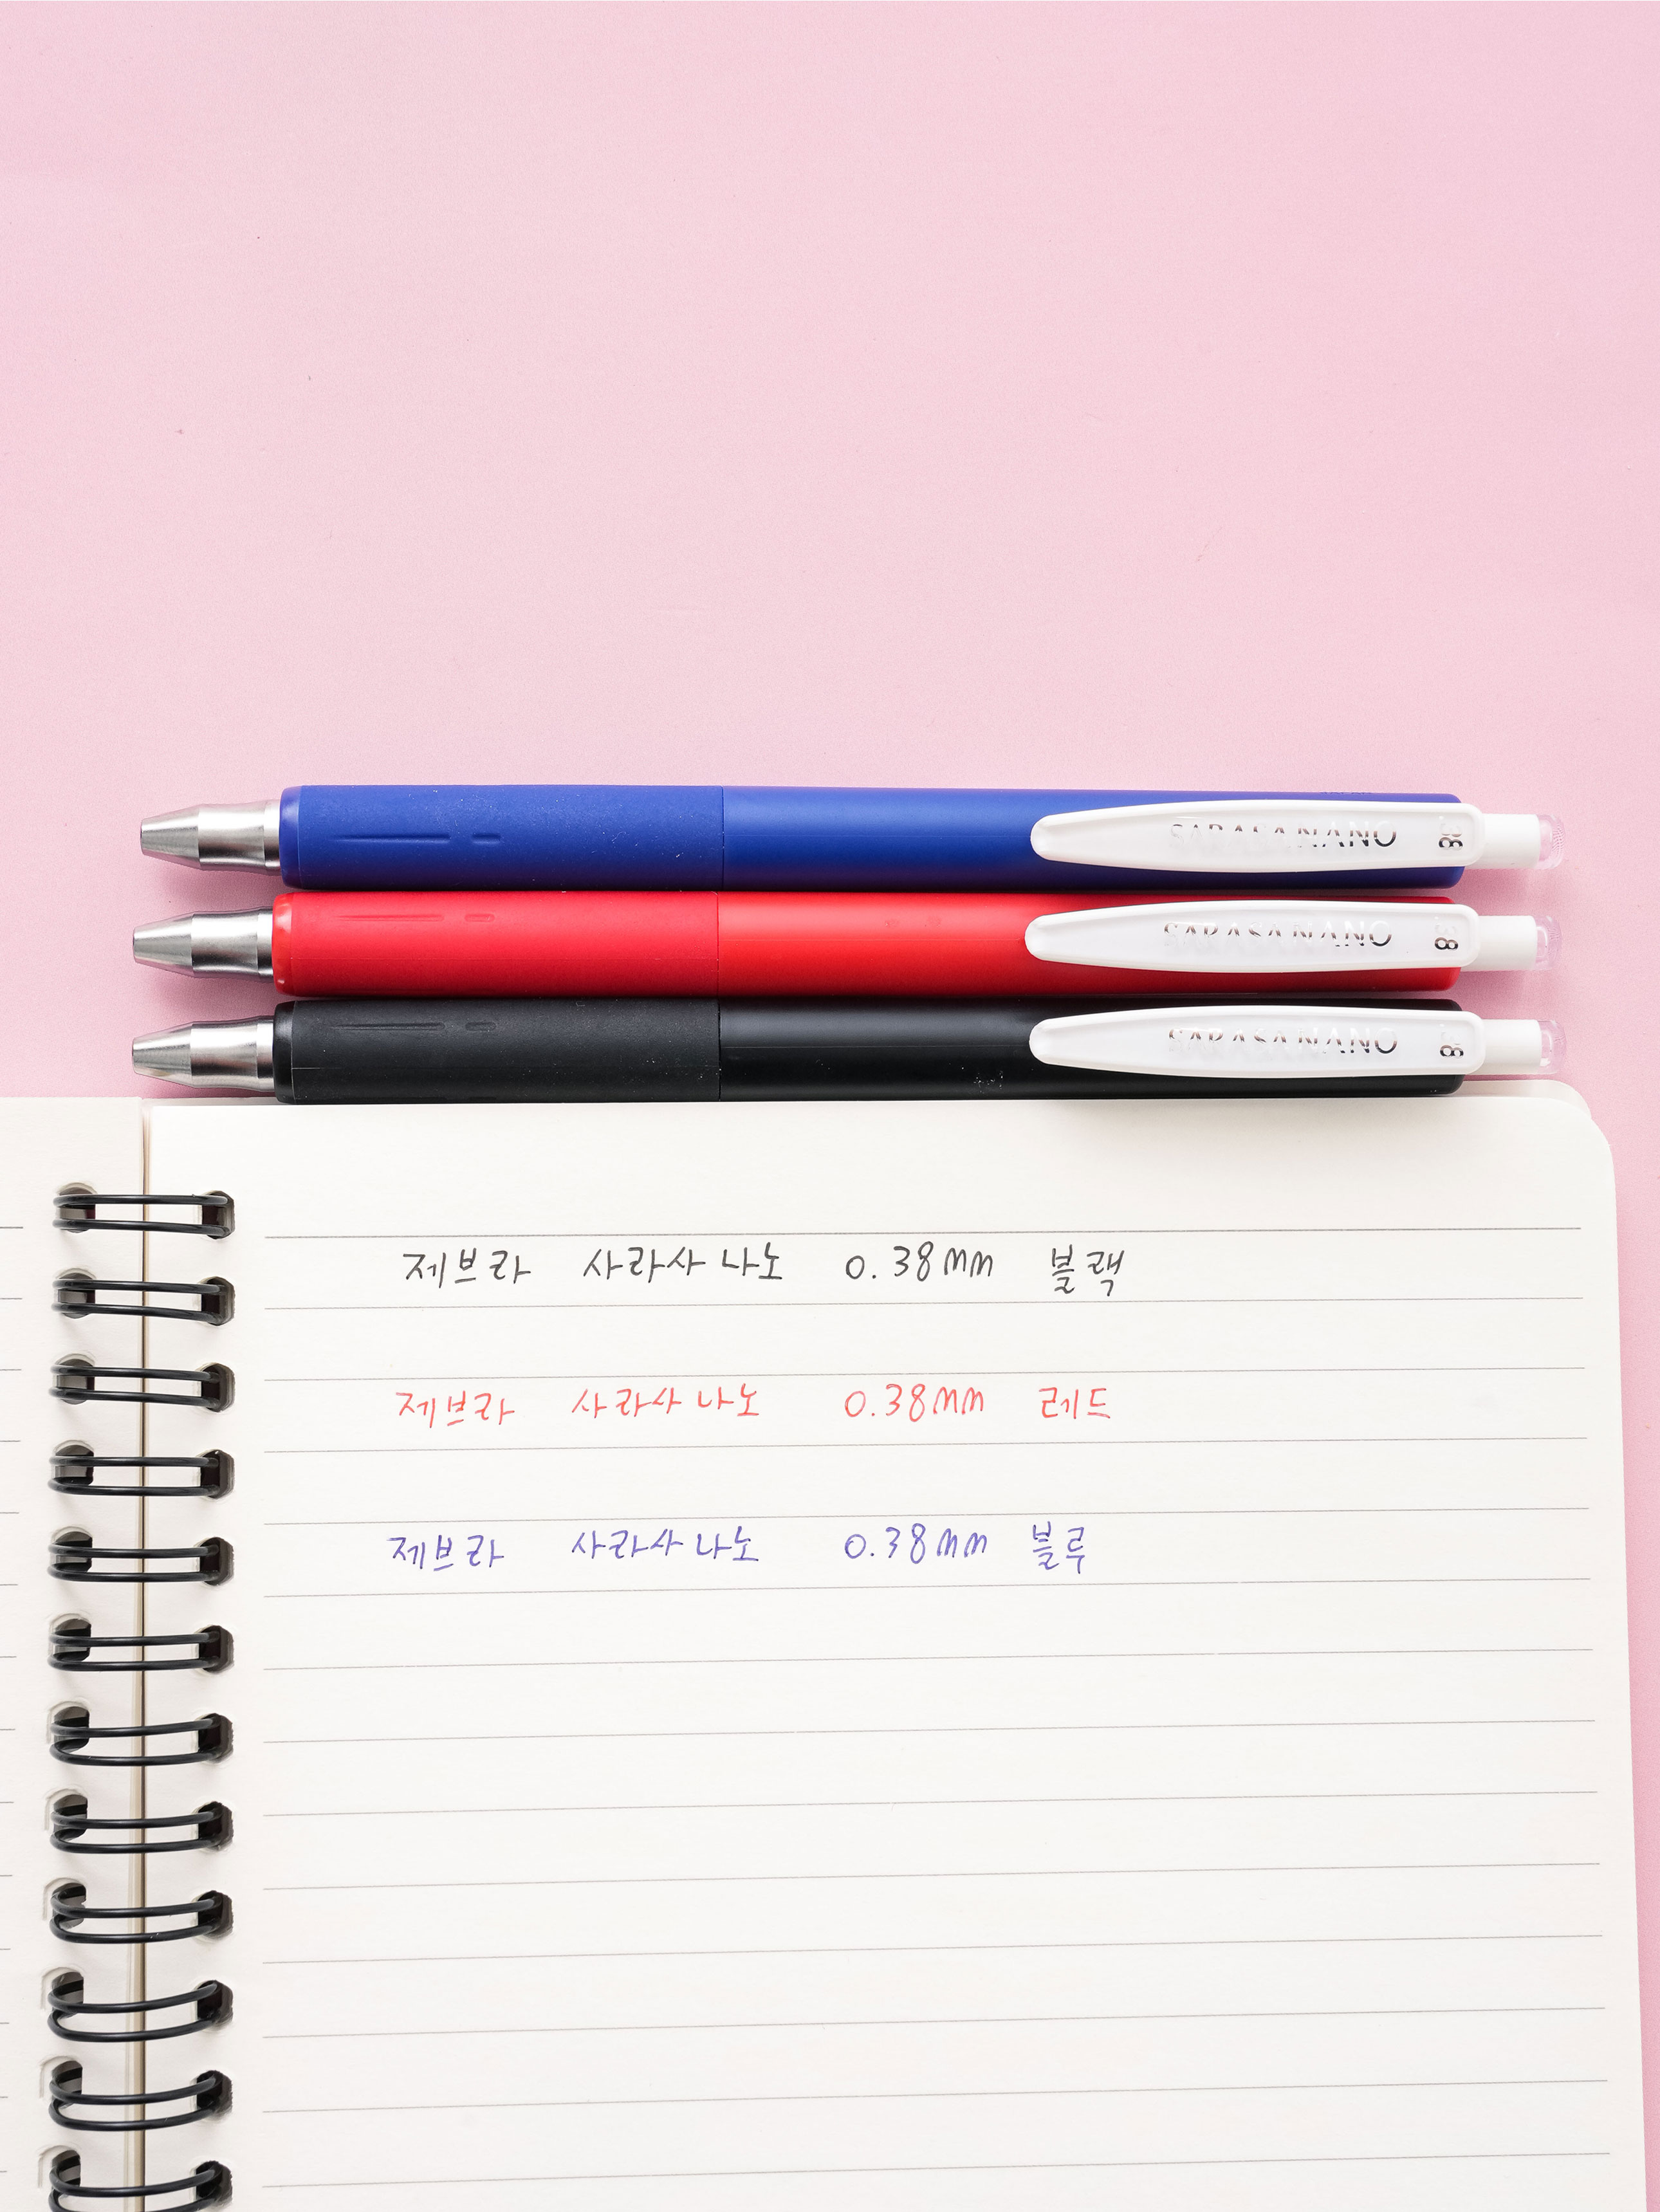 SARASA NANO .38
SARASA NANO .38
SARASA NANO .38
제브라 사라사 나노 0.38mm 블랙
제브라 사라사 나노 0.38mm 레드
제브라 사라사 나노 0.38mm 블루